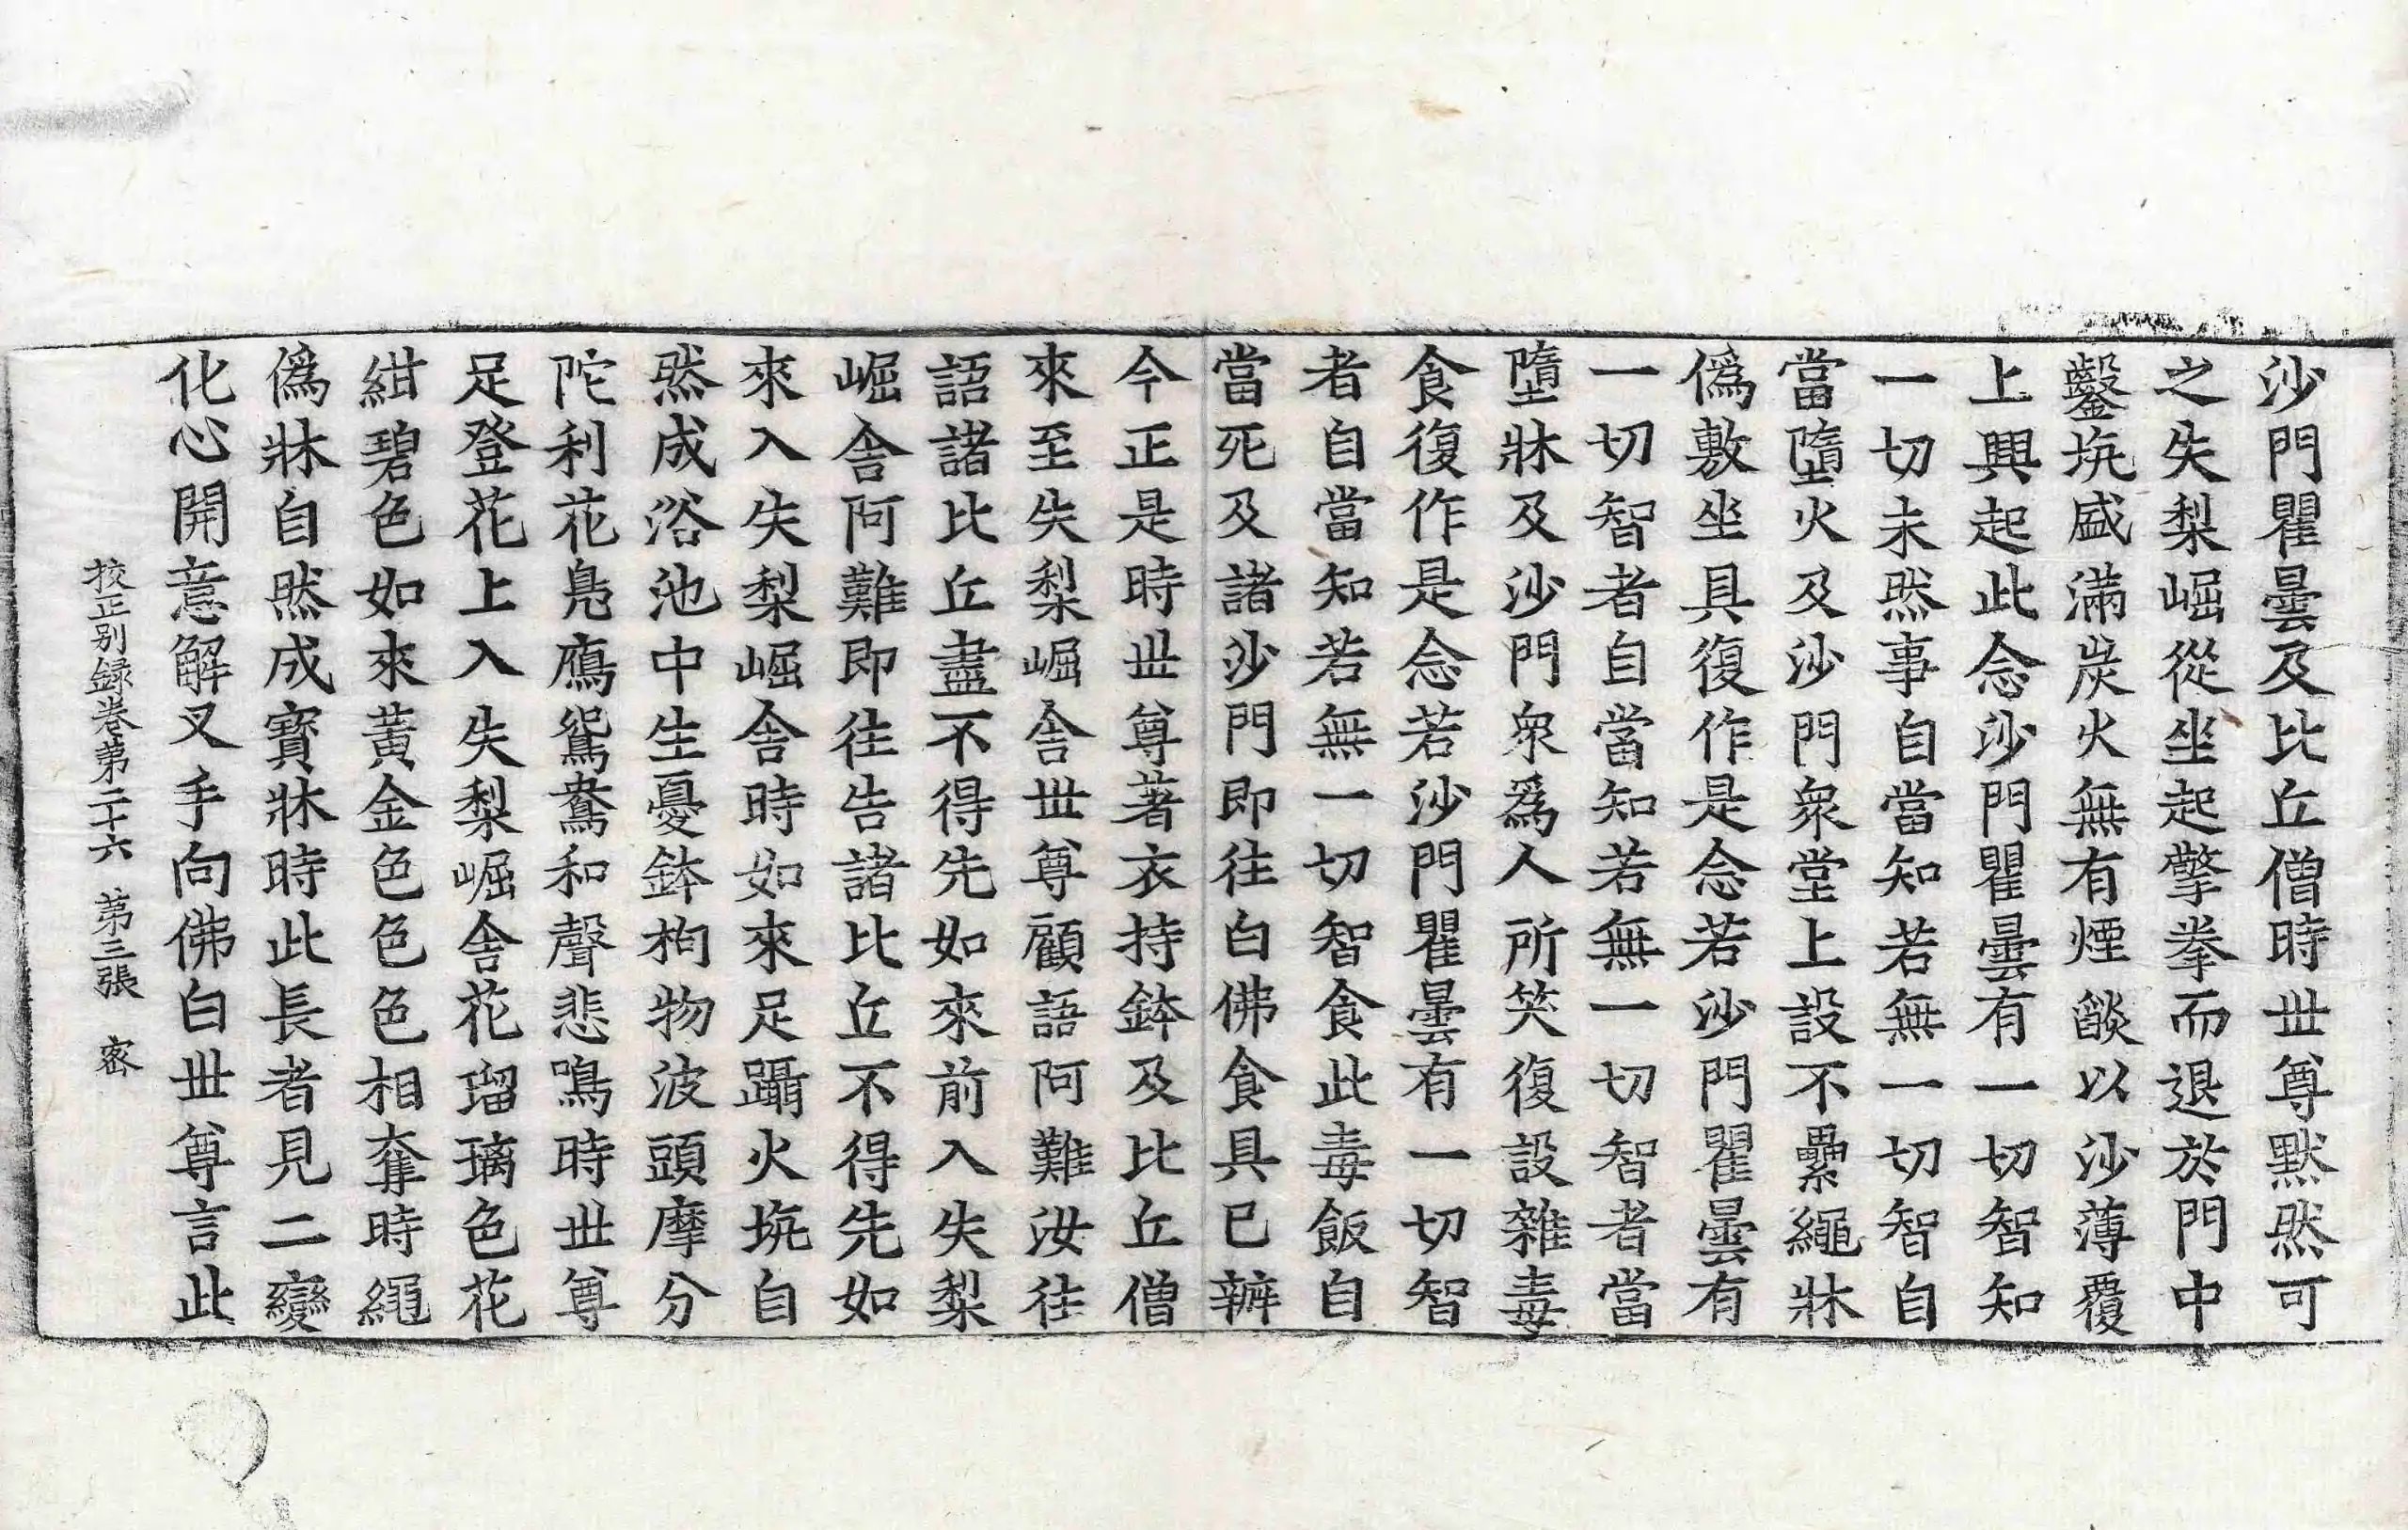 沙門瞿曇及比丘僧時世尊默然可
之失梨崛從坐起擎拳而退於門中
鑿坑盛滿炭火無有煙燄以沙薄覆
上興起此念沙門瞿曇有一切智知
一切未然事自當知若無一切智自
當墮火及沙門衆堂上設不纍繩牀
僞敷坐具復作是念若沙門瞿曇有
一切智者自當知若無一切智者當
墮牀及沙門衆爲人所笑復設雜毒
食復作是念若沙門瞿曇有一切智
者自當知若無一切智食此毒飯自
當死及諸沙門即往白佛食具已辦
今正是時世尊著衣持鉢及比丘僧
來至失梨崛舍世尊顧語阿難汝往
語諸比丘盡不得先如來前入失梨
崛舍阿難即往告諸比丘不得先如
來入失梨崛舍時如來足躡火坑自
然成浴池中生憂鉢拘物波頭摩分
陀利花鳧鴈鴛鴦和聲悲鳴時世尊
足登花上入失梨崛舍花瑠璃色花
紺碧色如來黃金色色色相奪時繩
僞牀自然成寶牀時此長者見二變
化心開意解叉手向佛白世尊言此
校正别録卷第二十六 第三張 宻